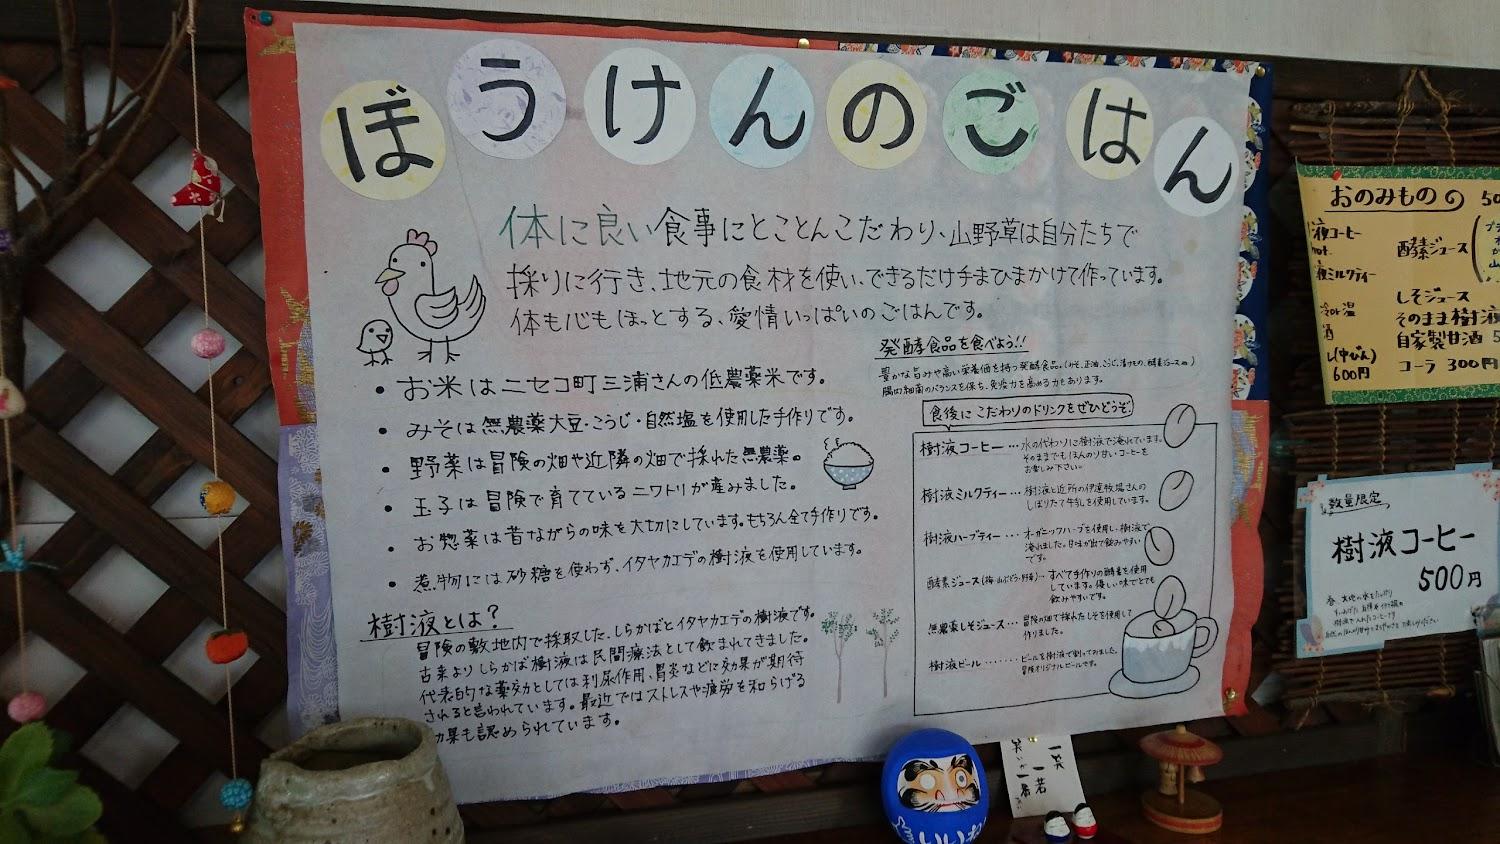 ぼうけんのごはん
体に良い食事にとことんこだわり、山野草は自分たちで
採りに行き、地元の食材を使い、できるだけ手まひまかけて作っています。
体も心もほっとする、愛情いっぱいのごはんです。
・お米はニセコ町三浦さんの低農薬米です。
・みそは無農薬大豆・こうじ・自然塩を使用した手作りです。
・野菜は冒険の畑や近隣の畑で採れた無農薬。
・玉子は冒険で育てているニワトリが産みました。
・お惣菜は昔ながらの味を大切にしています。もちろん全て手作りです。
・煮物には砂糖を使わず、イタヤカエデの樹液を使用しています。
樹液とは?
冒険の敷地内で採取した、しらかばとイタヤカエデの樹液です。
古来よりしらかば樹液は民間療法として飲まれてきました。
代表的な薬効としては利尿作用、胃炎などに効果が期待
されると言われています。最近ではストレスや疲労を和らげる
効果も認められています。
発酵食品を食べよう!!
豊かな旨みや高い栄養価を持つ発酵食品。(みそ、正油、こうじ、漬けもの、酵素ジュースetc)
腸内細菌のバランスを保ち、免疫力を高める力もあります。
食後にこだわりのドリンクをぜひどうぞ
樹液コーヒー…水の代わりに樹液で淹れています。
そのままでもほんのり甘い、コーヒーを
お楽しみ下さい。
樹液ミルクティー…樹液と近所の伊達牧場さんの
しぼりたて牛乳を使用しています。
樹液ハーブティー…オーガニックハーブを使用し、樹液で
淹れました。甘味が出て飲みやすい
です。
酵素ジュース(梅・山ぶどう・野草)…すべて手作りの酵素を使用
しています。優しい味でとても
飲みやすいです。
無農薬しそジュース…冒険の畑で採れたしそを使用して
作りました。
樹液ビール……ビールを樹液で割ってみました。
冒険オリジナルビールです。
おのみもの 50
液コーヒー
hot
液ミルクティー
冷or温
酒
ル(中びん)
600円
酵素ジュース
しそジュース
そのまま樹液
自家製甘酒 5
コーラ 300円
数量限定
樹液コーヒー
500円
一笑
一若
いいね